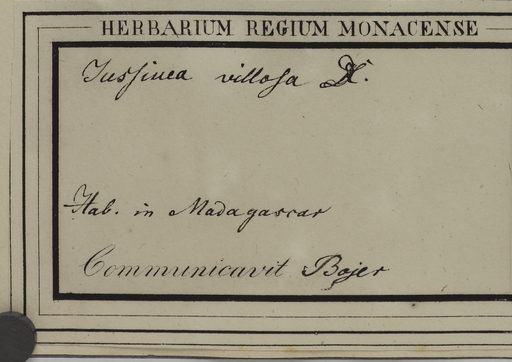 HERBARIUM REGIUM MONACENSE
Jussiuea villosa
Hab. in Madagascar
Communicavit Bojer